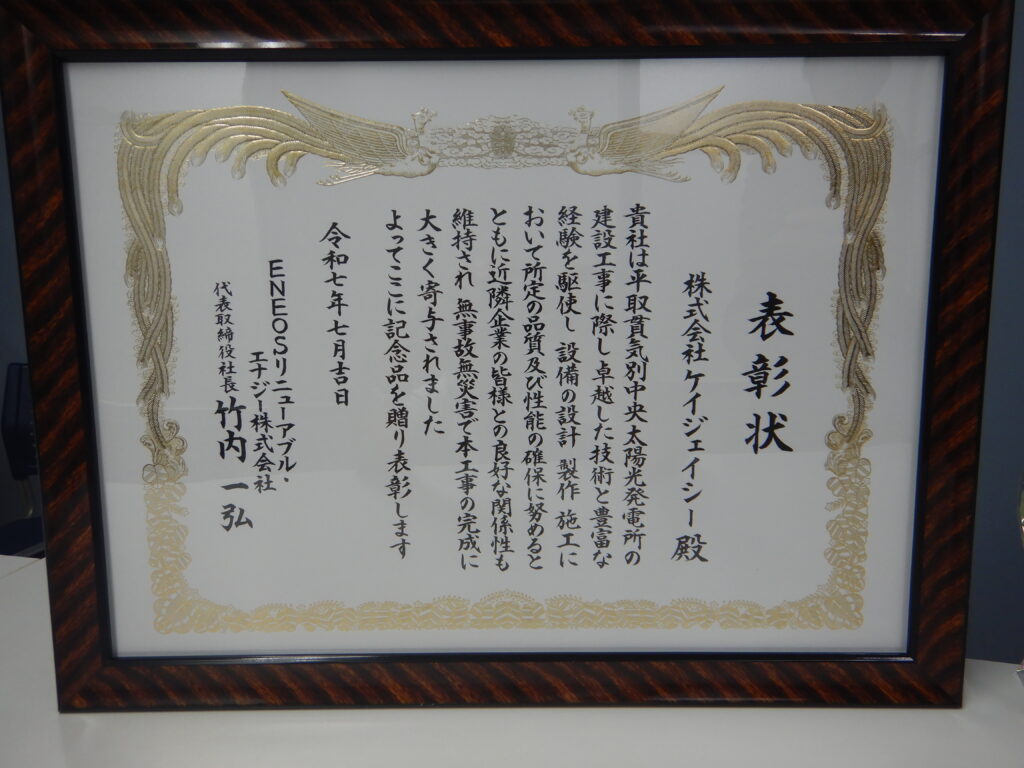 表彰状
株式会社ケイジェイシー 殿
貴社は平取貫気別中央太陽光発電所の
建設工事に際し卓越した技術と豊富な
経験を駆使し 設備の設計 製作 施工に
おいて所定の品質及び性能の確保に努めると
ともに近隣企業の皆様との良好な関係性も
維持され 無事故無災害で本工事の完成に
大きく寄与されました
よってここに記念品を贈り表彰します
令和七年七月吉日
ENEOSリニューアブル・
エナジー株式会社
代表取締役社長 竹内 一弘